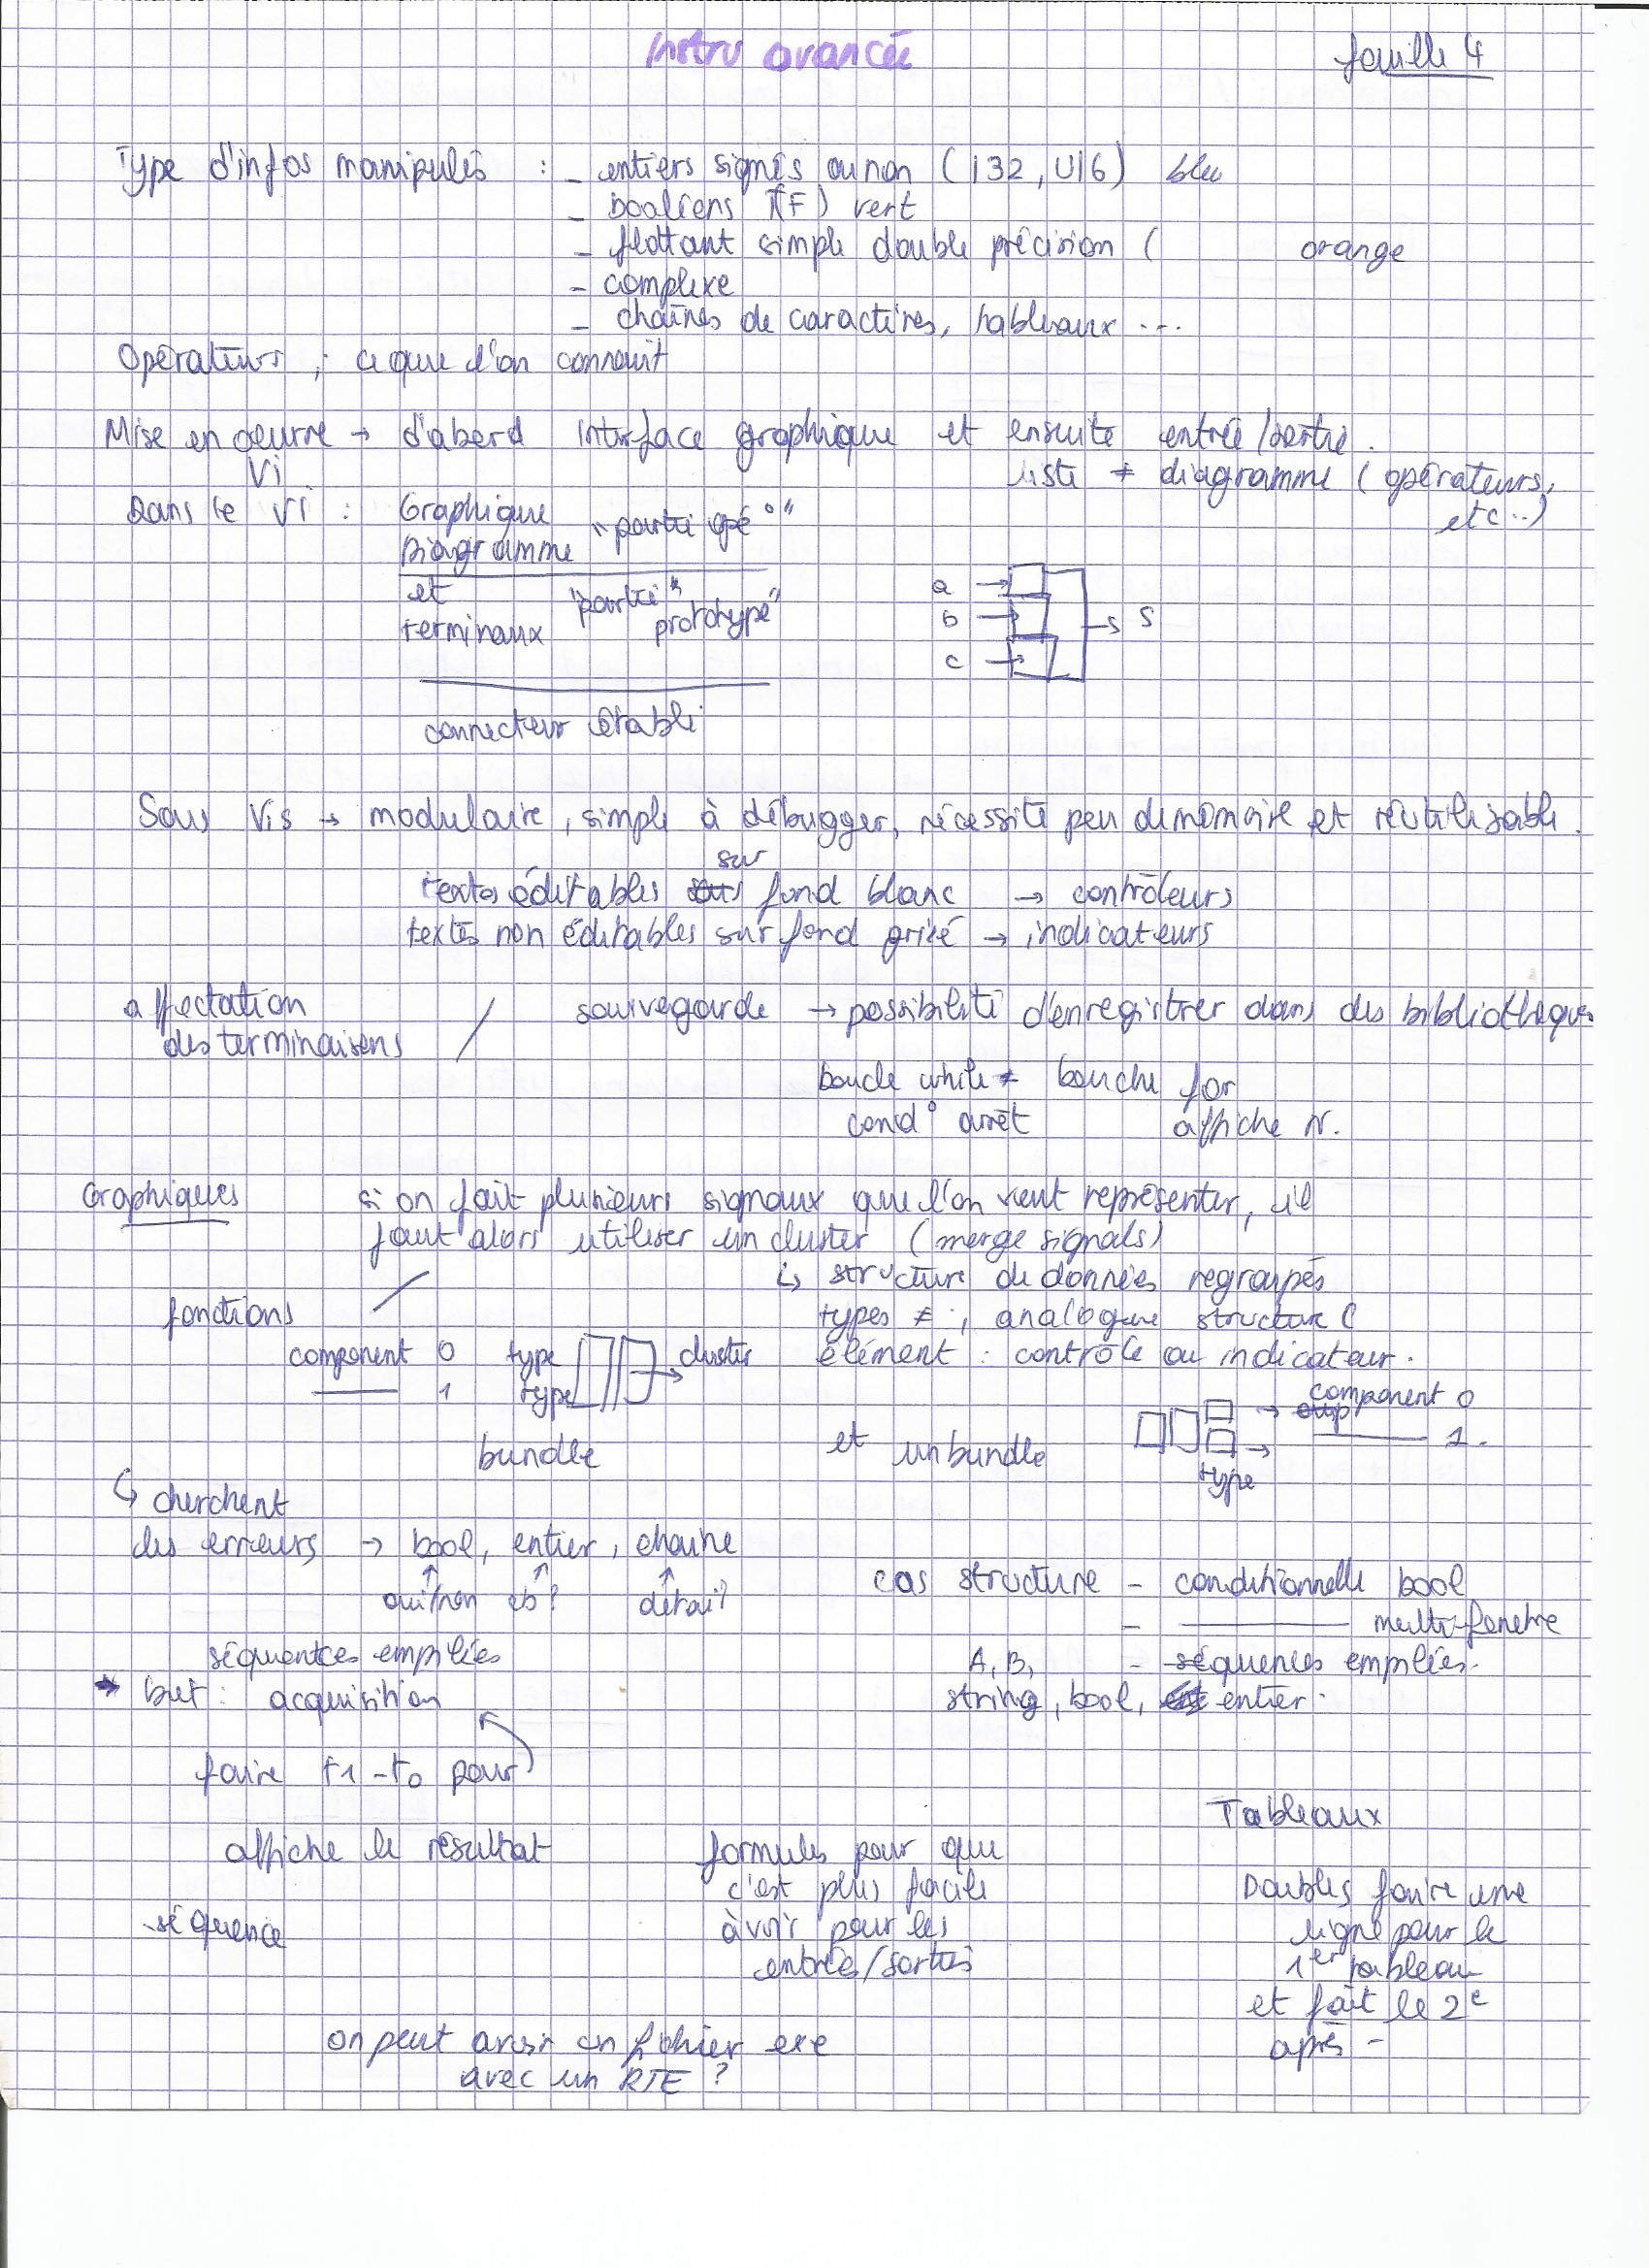 Instru avancée
feuille 4
Type d'infos manipulés : - entiers signés ou non (i32, U16) bleu
- booléens T(F) vert
- flottant simple double précision ( orange
- complexe
- chaînes de caractères, tableaux ...
Opérateurs ; ce que l'on connait
Mise en oeuvre → d'abord interface graphique et ensuite entrée/sortie.
Vi
liste ≠ diagramme (opérateurs, etc..)
Dans le Vi : Graphique
Diagramme
"partie opé°"
et terminaux
"partie" prototype"
connecteur établi
a
b
c
s S
Sous Vis → modulaire, simple à débugger, nécessite peu de mémoire et réutilisable.
sur
textes éditables sous fond blanc → contrôleurs
textes non éditables sur fond grisé → indicateurs
affectation des terminaisons
/ sauvegarde → possibilité d'enregistrer dans des bibliothèques
boucle while ≠ boucle for
cond° arrêt affiche N.
Graphiques si on fait plusieurs signaux que l'on veut représenter, il
faut alors utiliser un cluster (merge signals)
↳ structure de données regroupés
types ≠ ; analogue structure C
élément : contrôle ou indicateur.
fonctions /
component 0 type cluster
1 type
bundle et unbundle
component 0
1.
type
↳ cherchent
des erreurs → bool, entier, chaîne
↑ ↑ ↑
oui/non cb? détail?
cas structure - conditionnelle bool
- multi-fenêtre
- séquences empilées.
A, B,
string, bool, entier.
séquences empilées
→ but : acquisition
faire t1 - t0 pour
affiche le résultat
séquence
formules pour que
c'est plus facile
à voir pour les
entrées/sorties
Tableaux
Doubles faire une
ligne pour le
1er tableau
et fait le 2e
après -
on peut avoir un fichier exe
avec un RTE ?